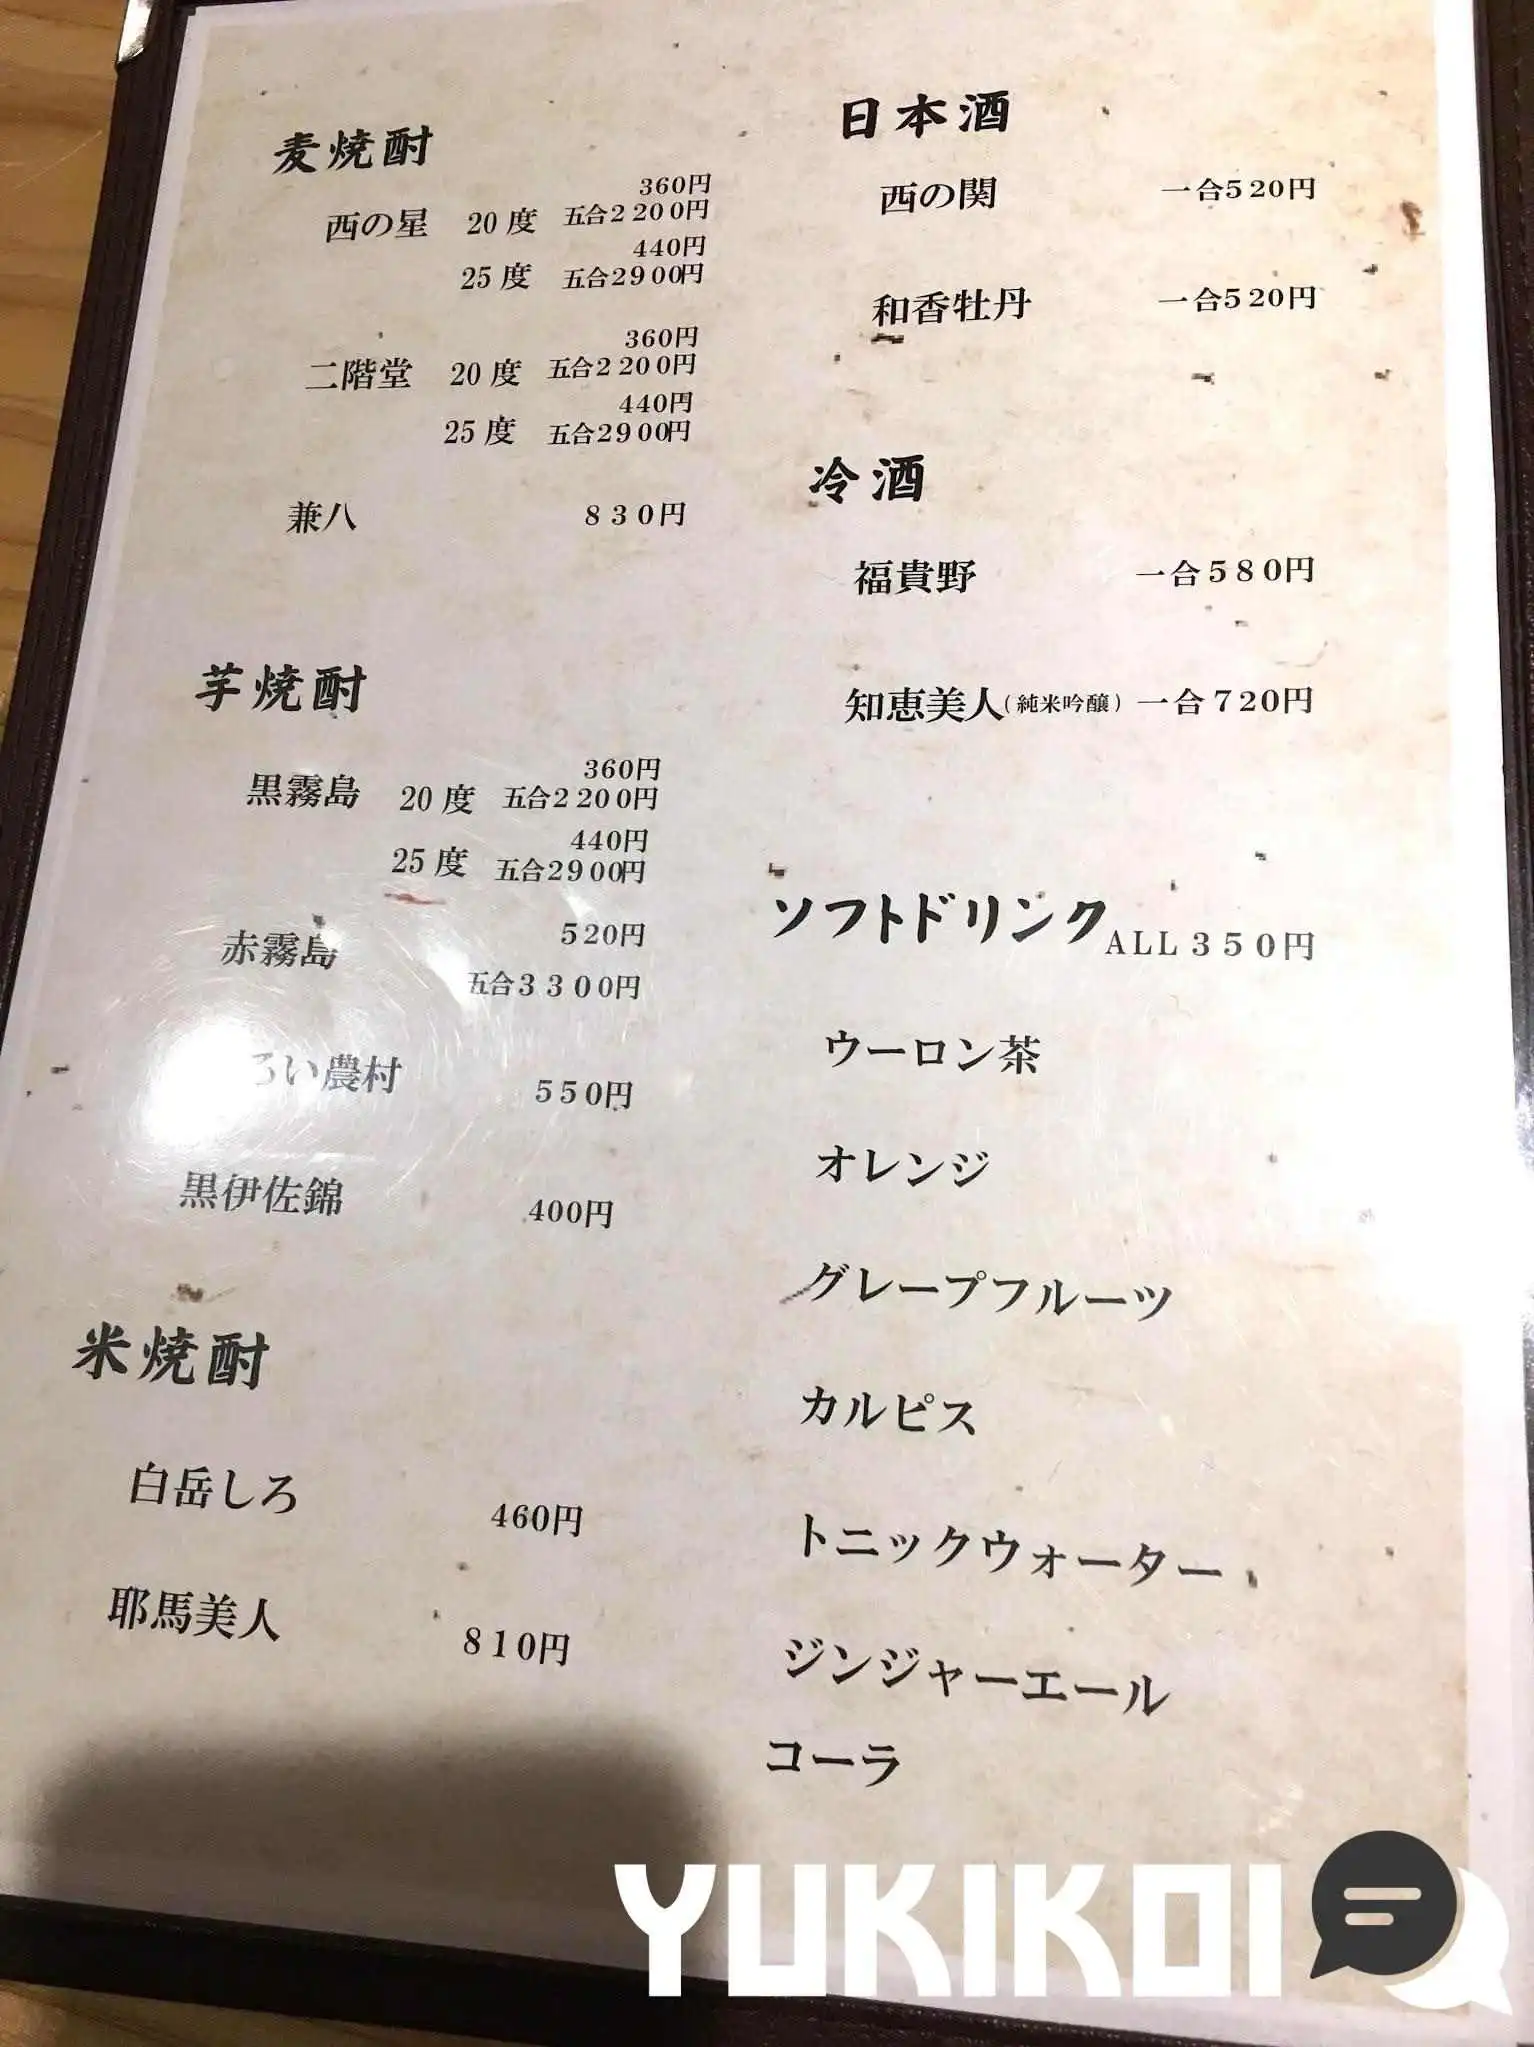 麦焼酎
360円
西の星 20度 五合2200円
440円
25度 五合2900円
360円
二階堂 20度 五合2200円
440円
25度 五合2900円
兼八 830円
芋焼酎
360円
黒霧島 20度 五合2200円
440円
25度 五合2900円
赤霧島 520円
五合3300円
ろい農村 550円
黒伊佐錦 400円
米焼酎
白岳しろ 460円
耶馬美人 810円
日本酒
西の関 一合520円
和香牡丹 一合520円
冷酒
福貴野 一合580円
知恵美人(純米吟醸) 一合720円
ソフトドリンク ALL350円
ウーロン茶
オレンジ
グレープフルーツ
カルピス
トニックウォーター
ジンジャーエール
コーラ
YUKIKOI